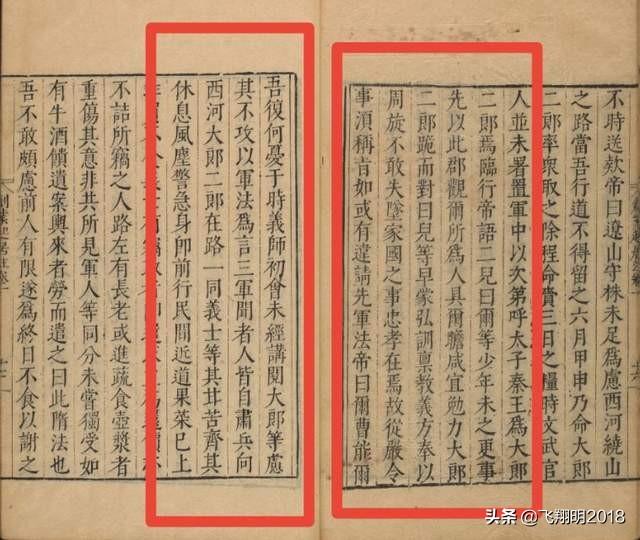 不時送欵帝曰遼山守株未足爲慮西河繞山
之路當吾行道不得留之六月甲申乃命大郎
二郎率衆取之除程命賫三日之糧時文武官
人並未署置軍中以次第呼太子秦王爲大郎
二郎焉臨行帝語二兒曰爾等少年未之更事
先以此郡觀爾所爲人具爾瞻咸宜勉力大郎
二郎跪而對曰兒等早蒙弘訓禀教義方奉以
周旋不敢失墜家國之事忠孝在焉故從嚴令
事湏稱旨如或有違請先軍法帝曰爾曹能爾
吾復何憂于時義師初會未經講閱大郎等慮
其不攻以軍法爲言三軍聞者人皆自肅兵向
西河大郎二郎在路一同義士等其甘苦齊其
休息風塵警急身卽前行民間近道果菜已上
義士有竊
不詰所竊之人路左有長老或進蔬食壺漿者
重傷其意非共所見軍人等同分未嘗獨受如
有牛酒饋遺案輿來者勞而遣之曰此隋法也
吾不敢頗慮前人有限遂爲終日不食以謝之
头条 @飞翔明2018